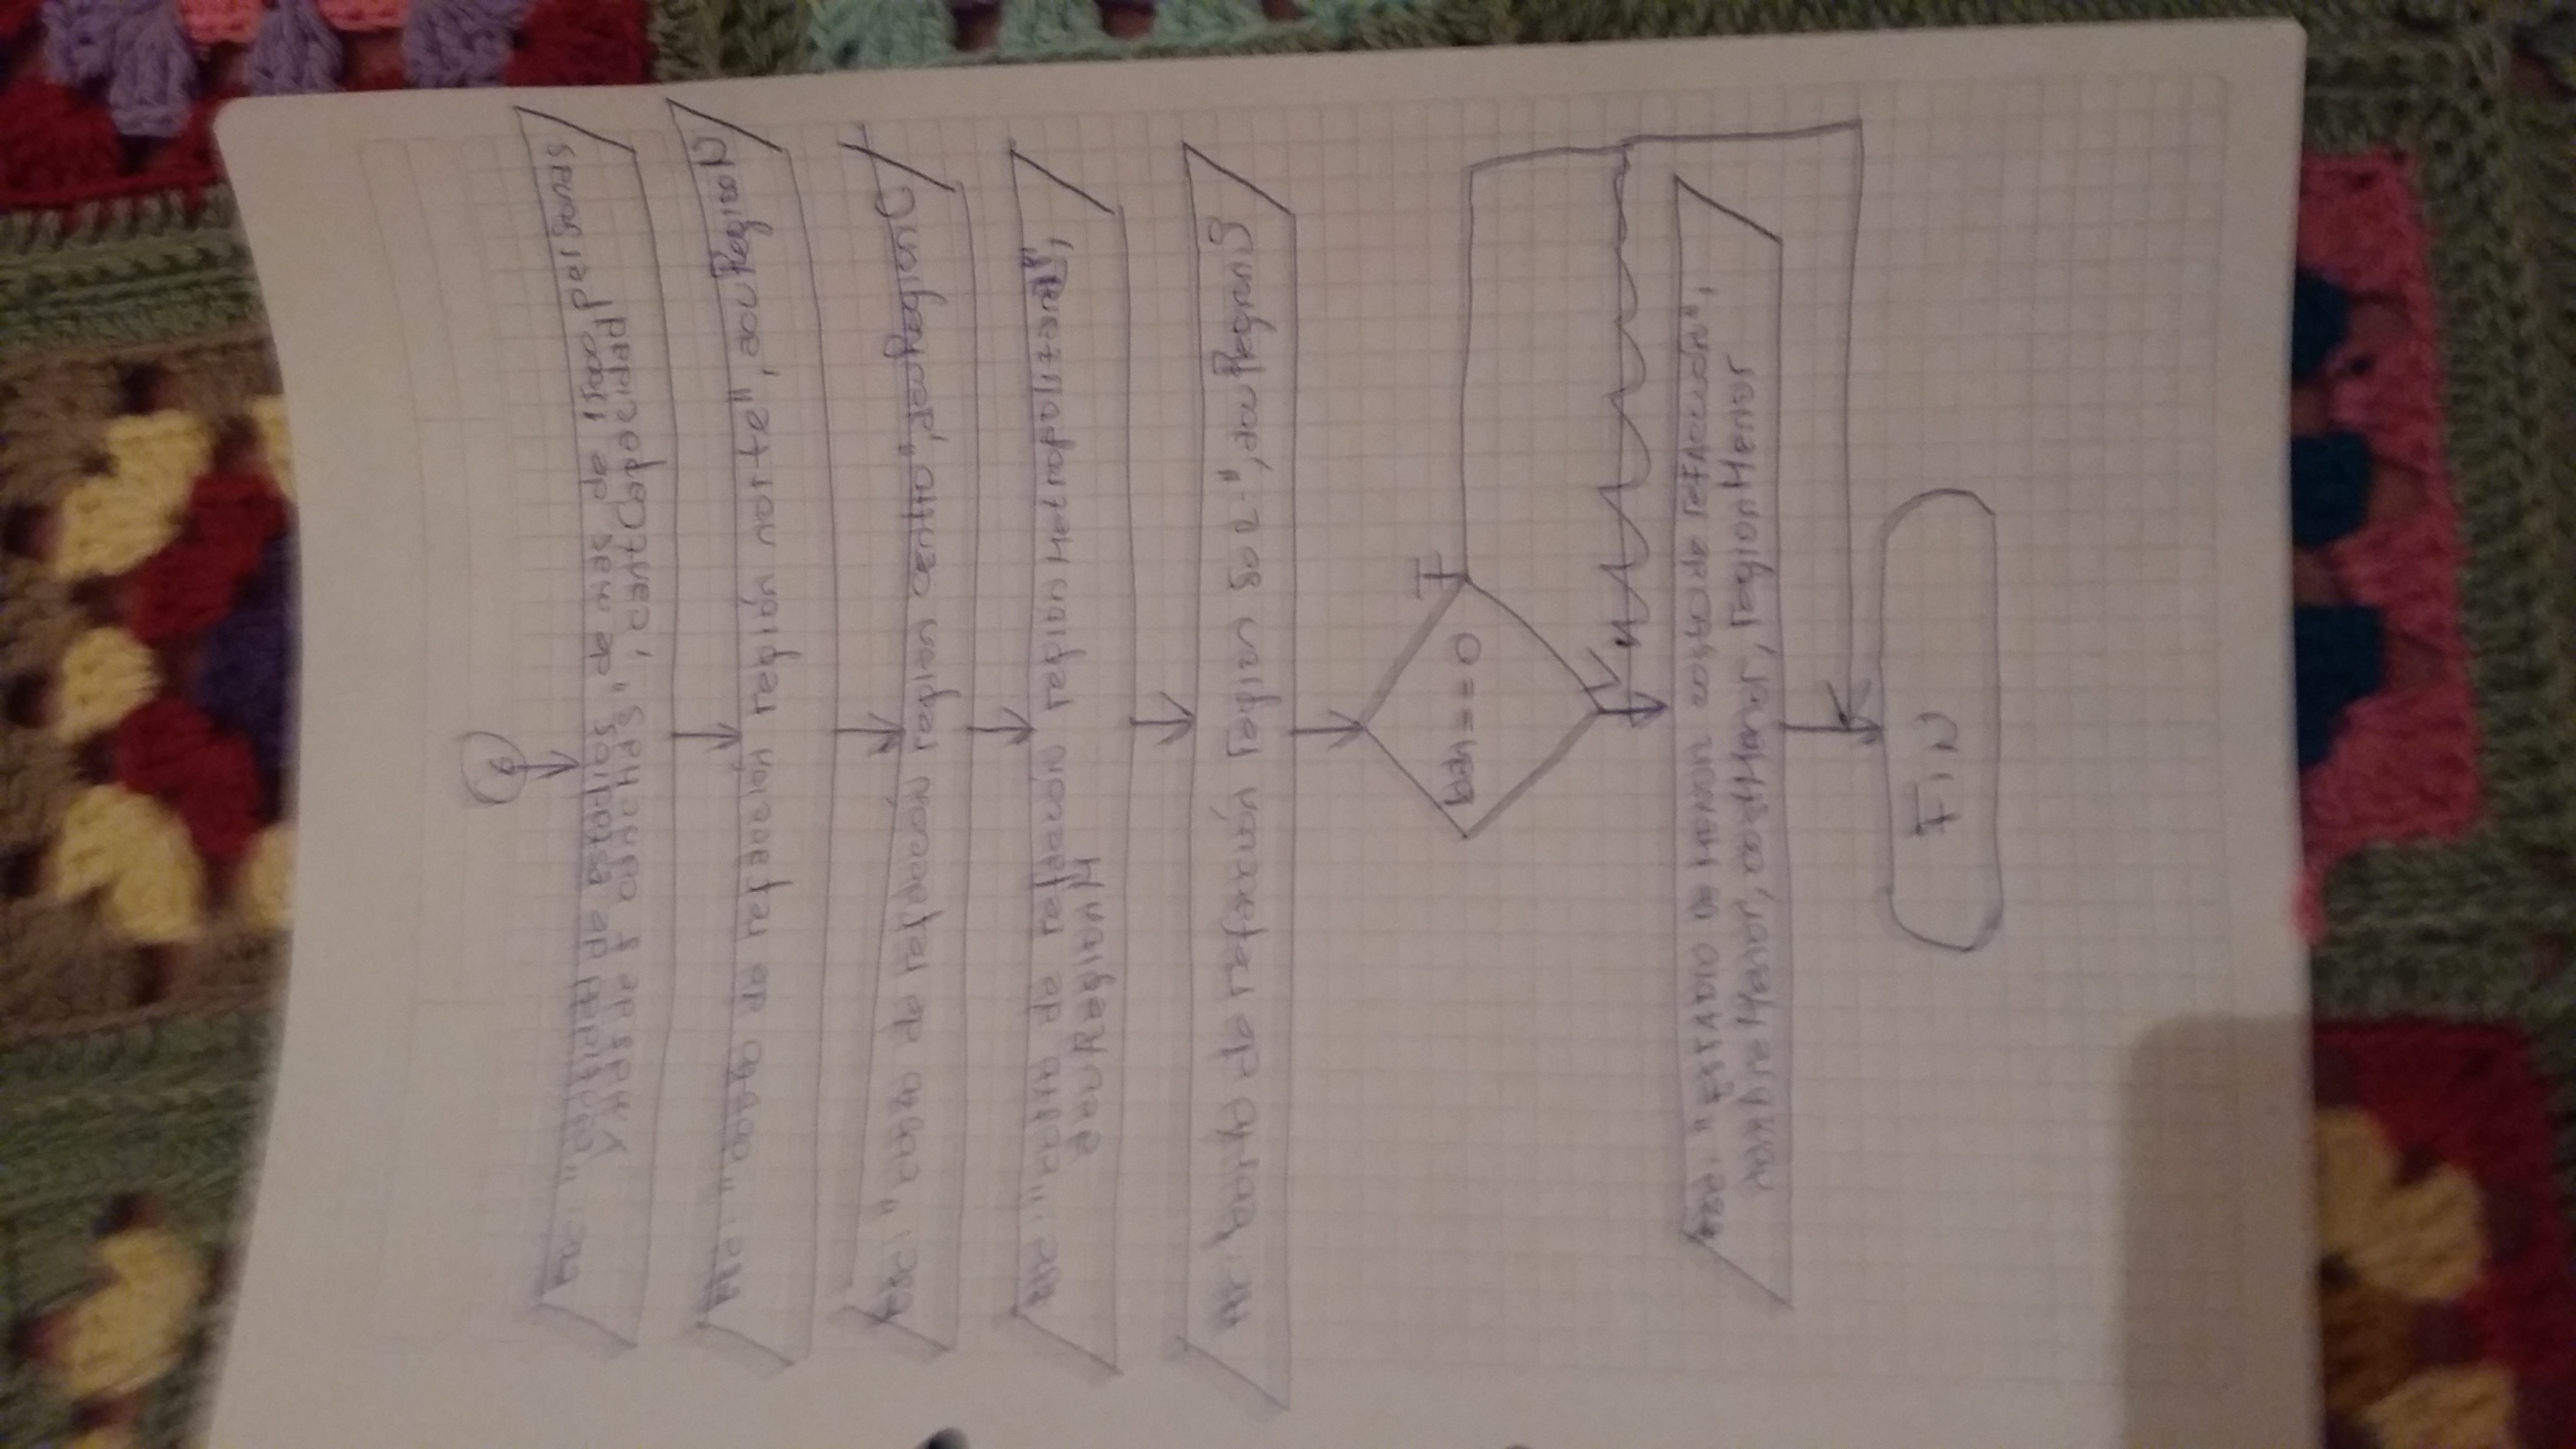 6
esc: "cantidad de estadios de mas de 15000 personas
y mas de 5 canchas", cantCapacidad
esc: "costo de refacción región norte", acuRegionN
esc: "costo de refacción region centro", acuRegionC
esc: "costo de refacción region Metropolitana",
acuRegionM
esc: "costo de refacción region SUR", acuRegionS
ban==0
F
V
esc: "ESTADIO DE MENOR costo de refacción",
nombreMenor, costMenor, regionMenor
FIN